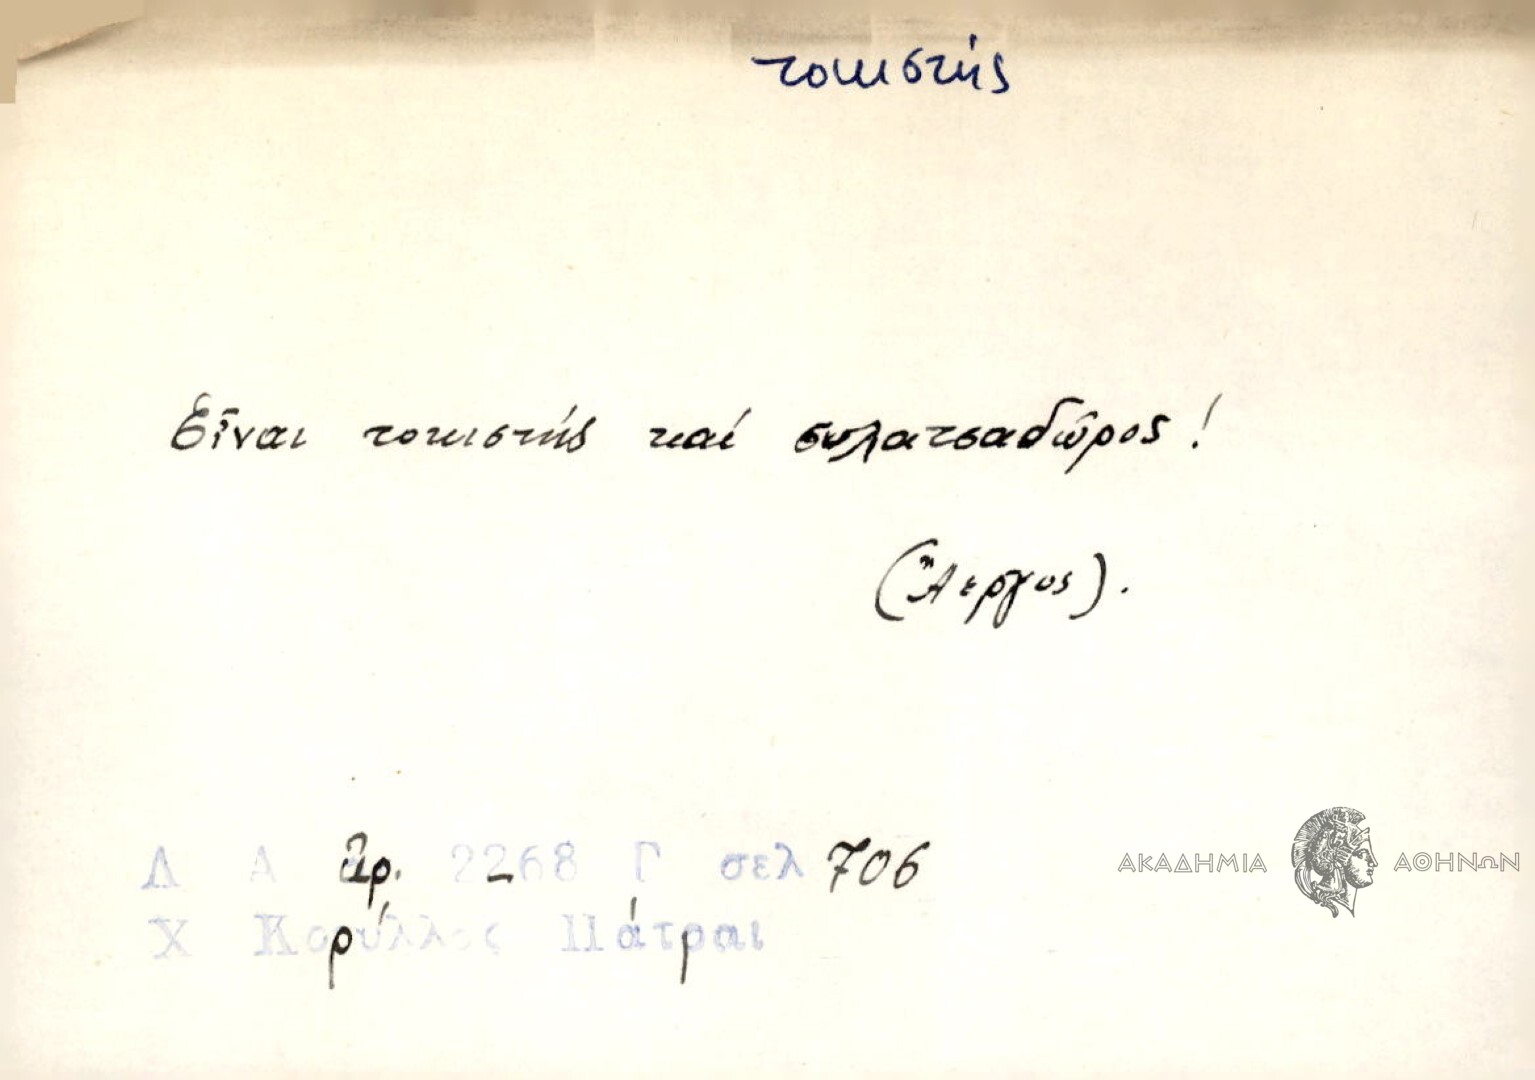 τοκιστής
Εἶναι τοκιστής καί σουλατσαδῶρος!
(Ἄεργος).
Λ Α ἀρ. 2268 Γ σελ 706
Χ Κορύλλος Πάτραι
ΑΚΑΔΗΜΙΑ ΑΘΗΝΩΝ